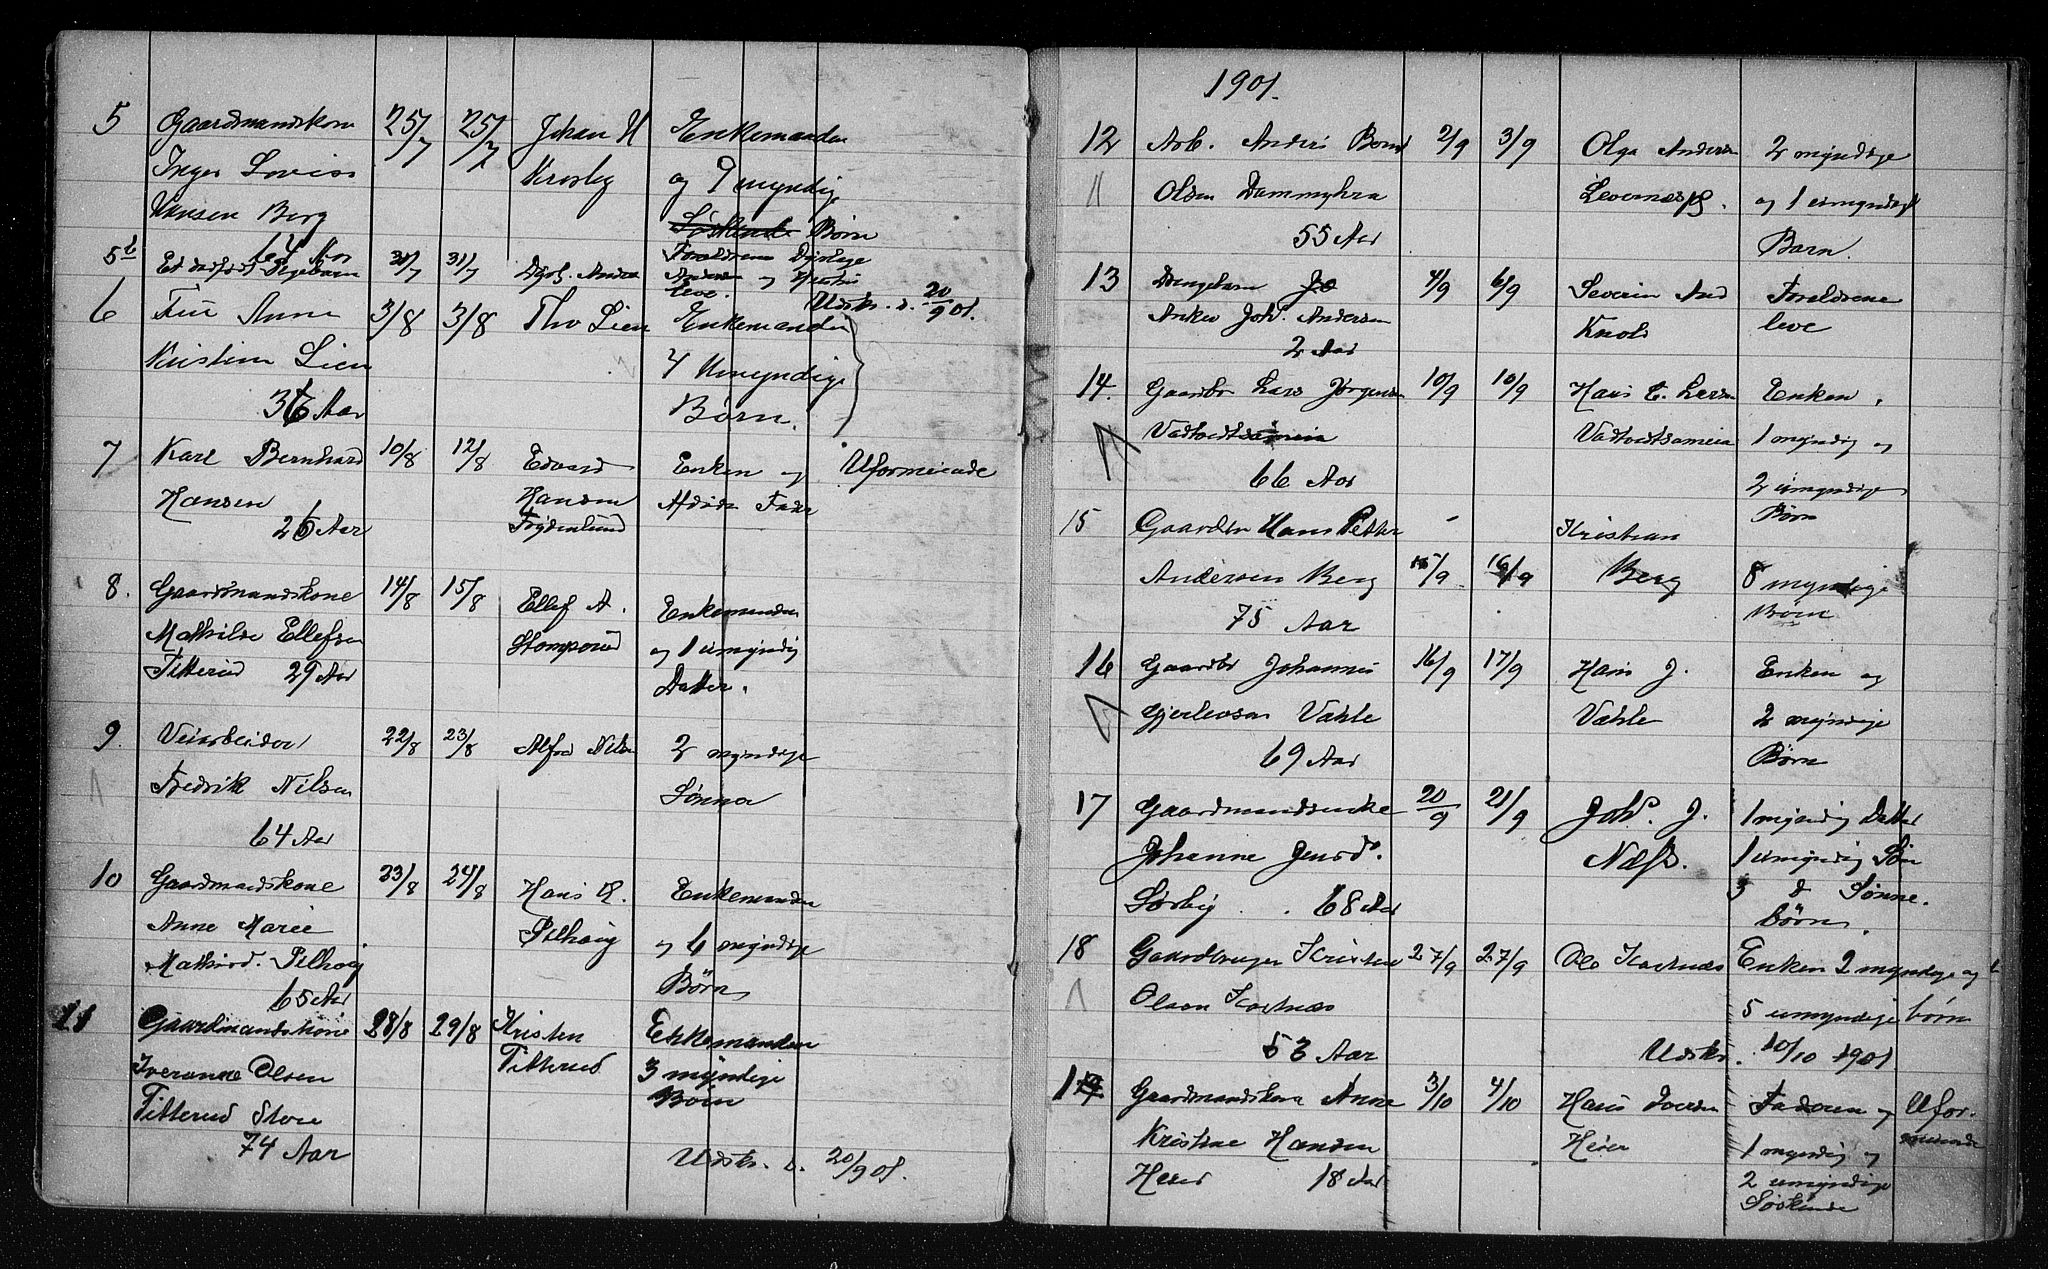 5 Gaardmandskone 25/7 25/7 Johan H Enkemanden
Inger Lovise Krosby og 9 myndig
Hansen Berg Søskende Børn
64 Aar
5b Et dødfødt Pigebarn 31/7 31/7 Forældrene
og leve.
Udskr. d. 20/9 01.
6 Fru Anne 3/8 3/8 Tho Lien Enkemanden
Kristine Lien 4 Umyndige
36 Aar Børn.
7 Karl Bernhard 10/8 12/8 Edvard Enken og Uformuende
Hansen Hansen Afdøde Fader
26 Aar Frydenlund
8. Gaardmandskone 14/8 15/8 Ellef A. Enkemanden
Mathilde Ellefsen Stomperud og 1 umyndig
Titterud 29 Aar Datter.
9. Veiarbeider 22/8 23/8 Alfred Nilsen 2 myndige
Fredrik Nilsen Sønner
64 Aar
10 Gaardmandskone 23/8 24/8 Hans R. Enkemanden
Anne Marie Pilhaug og 6 myndige
Mathisd. Pilhaug Børn
65 Aar
11 Gaardmandskone 28/8 29/8 Kristen Enkemanden
Iveranne Olsen Titterud 3 myndige
Titterud Store Børn
74 Aar
Udskr. d. 20/9 01.
1901.
12 Arb. Anders 2/9 3/9 Olga Andersen 2 myndige
Olsen Dammyhra og 1 umyndigt
55 Aar Barn.
13 Drengebarn 4/9 6/9 Severin And Forældrene
Anker Joh. Andersen leve
2 Aar
14. Gaardbr Lars Jørgensen 10/9 10/9 Hans E. Larsen Enken,
Vadtvedtsameie Vadtvedtsameie 1 myndig og
66 Aar 2 umyndige
Børn
15 Gaardbr Hans Petter Kristian
Andersen Berg 15/9 16/9 Berg 8 myndige
75 Aar Børn
16 Gaardbr Johannes 16/9 17/9 Hans J. Enken og
Gjerlevsen Vahle Vahle 2 myndige
69 Aar Børn
17 Gaardmandsenke 20/9 21/9 Joh. J. 1 myndig Datter
Johanne Jensd. Næss. 1 umyndig Søn
Sørby 68 Aar 3 d Sønne.
børn.
18 Gaardbruger Kristen 27/9 27/9 Ole Enken 2 myndige og
Olsen 5 umyndige børn
53 Aar Udskr. 10/10 1901
19 Gaardmandskone Anne 3/10 4/10 Hans Iversen Faderen og Ufor-
Kristine Hansen Heier 1 myndig og muende
Heier 18 Aar 2 umyndige
Søskende